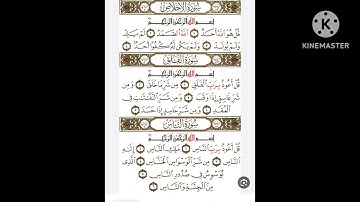 سُورَةُ الإِخْلَاصِ
بِسْمِ اللَّهِ الرَّحْمَٰنِ الرَّحِيمِ
قُلْ هُوَ اللَّهُ أَحَدٌ ۝ اللَّهُ الصَّمَدُ ۝ لَمْ يَلِدْ
وَلَمْ يُولَدْ ۝ وَلَمْ يَكُن لَّهُ كُفُوًا أَحَدٌ ۝
سُورَةُ الفَلَقِ
بِسْمِ اللَّهِ الرَّحْمَٰنِ الرَّحِيمِ
قُلْ أَعُوذُ بِرَبِّ الْفَلَقِ ۝ مِن شَرِّ مَا خَلَقَ ۝ وَمِن
شَرِّ غَاسِقٍ إِذَا وَقَبَ ۝ وَمِن شَرِّ النَّفَّاثَاتِ فِي
الْعُقَدِ ۝ وَمِن شَرِّ حَاسِدٍ إِذَا حَسَدَ ۝
سُورَةُ النَّاسِ
بِسْمِ اللَّهِ الرَّحْمَٰنِ الرَّحِيمِ
قُلْ أَعُوذُ بِرَبِّ النَّاسِ ۝ مَلِكِ النَّاسِ ۝ إِلَٰهِ
النَّاسِ ۝ مِن شَرِّ الْوَسْوَاسِ الْخَنَّاسِ ۝ الَّذِي
يُوَسْوِسُ فِي صُدُورِ النَّاسِ ۝
مِنَ الْجِنَّةِ وَالنَّاسِ ۝
KINEMASTER